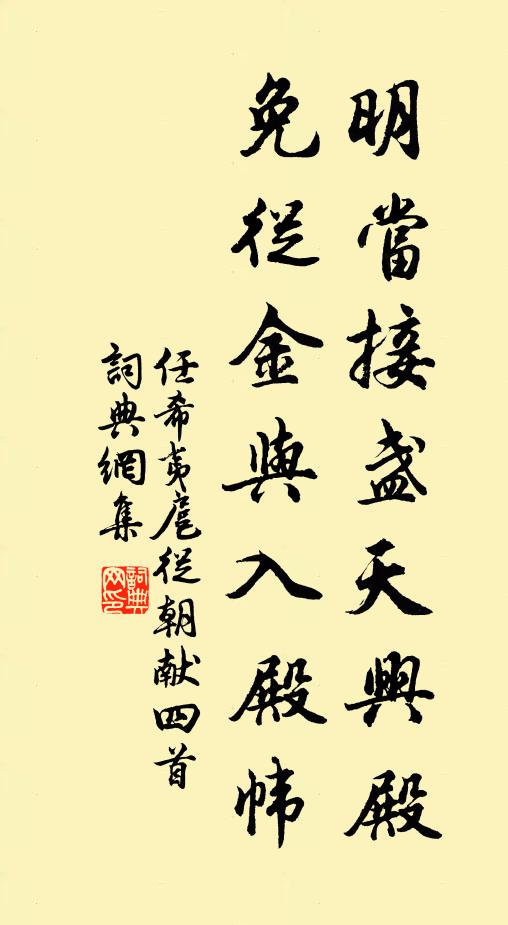 明當接盞天興殿
免從金與入殿幃
任希夷扈從朝献四首
詞典網集
詞典